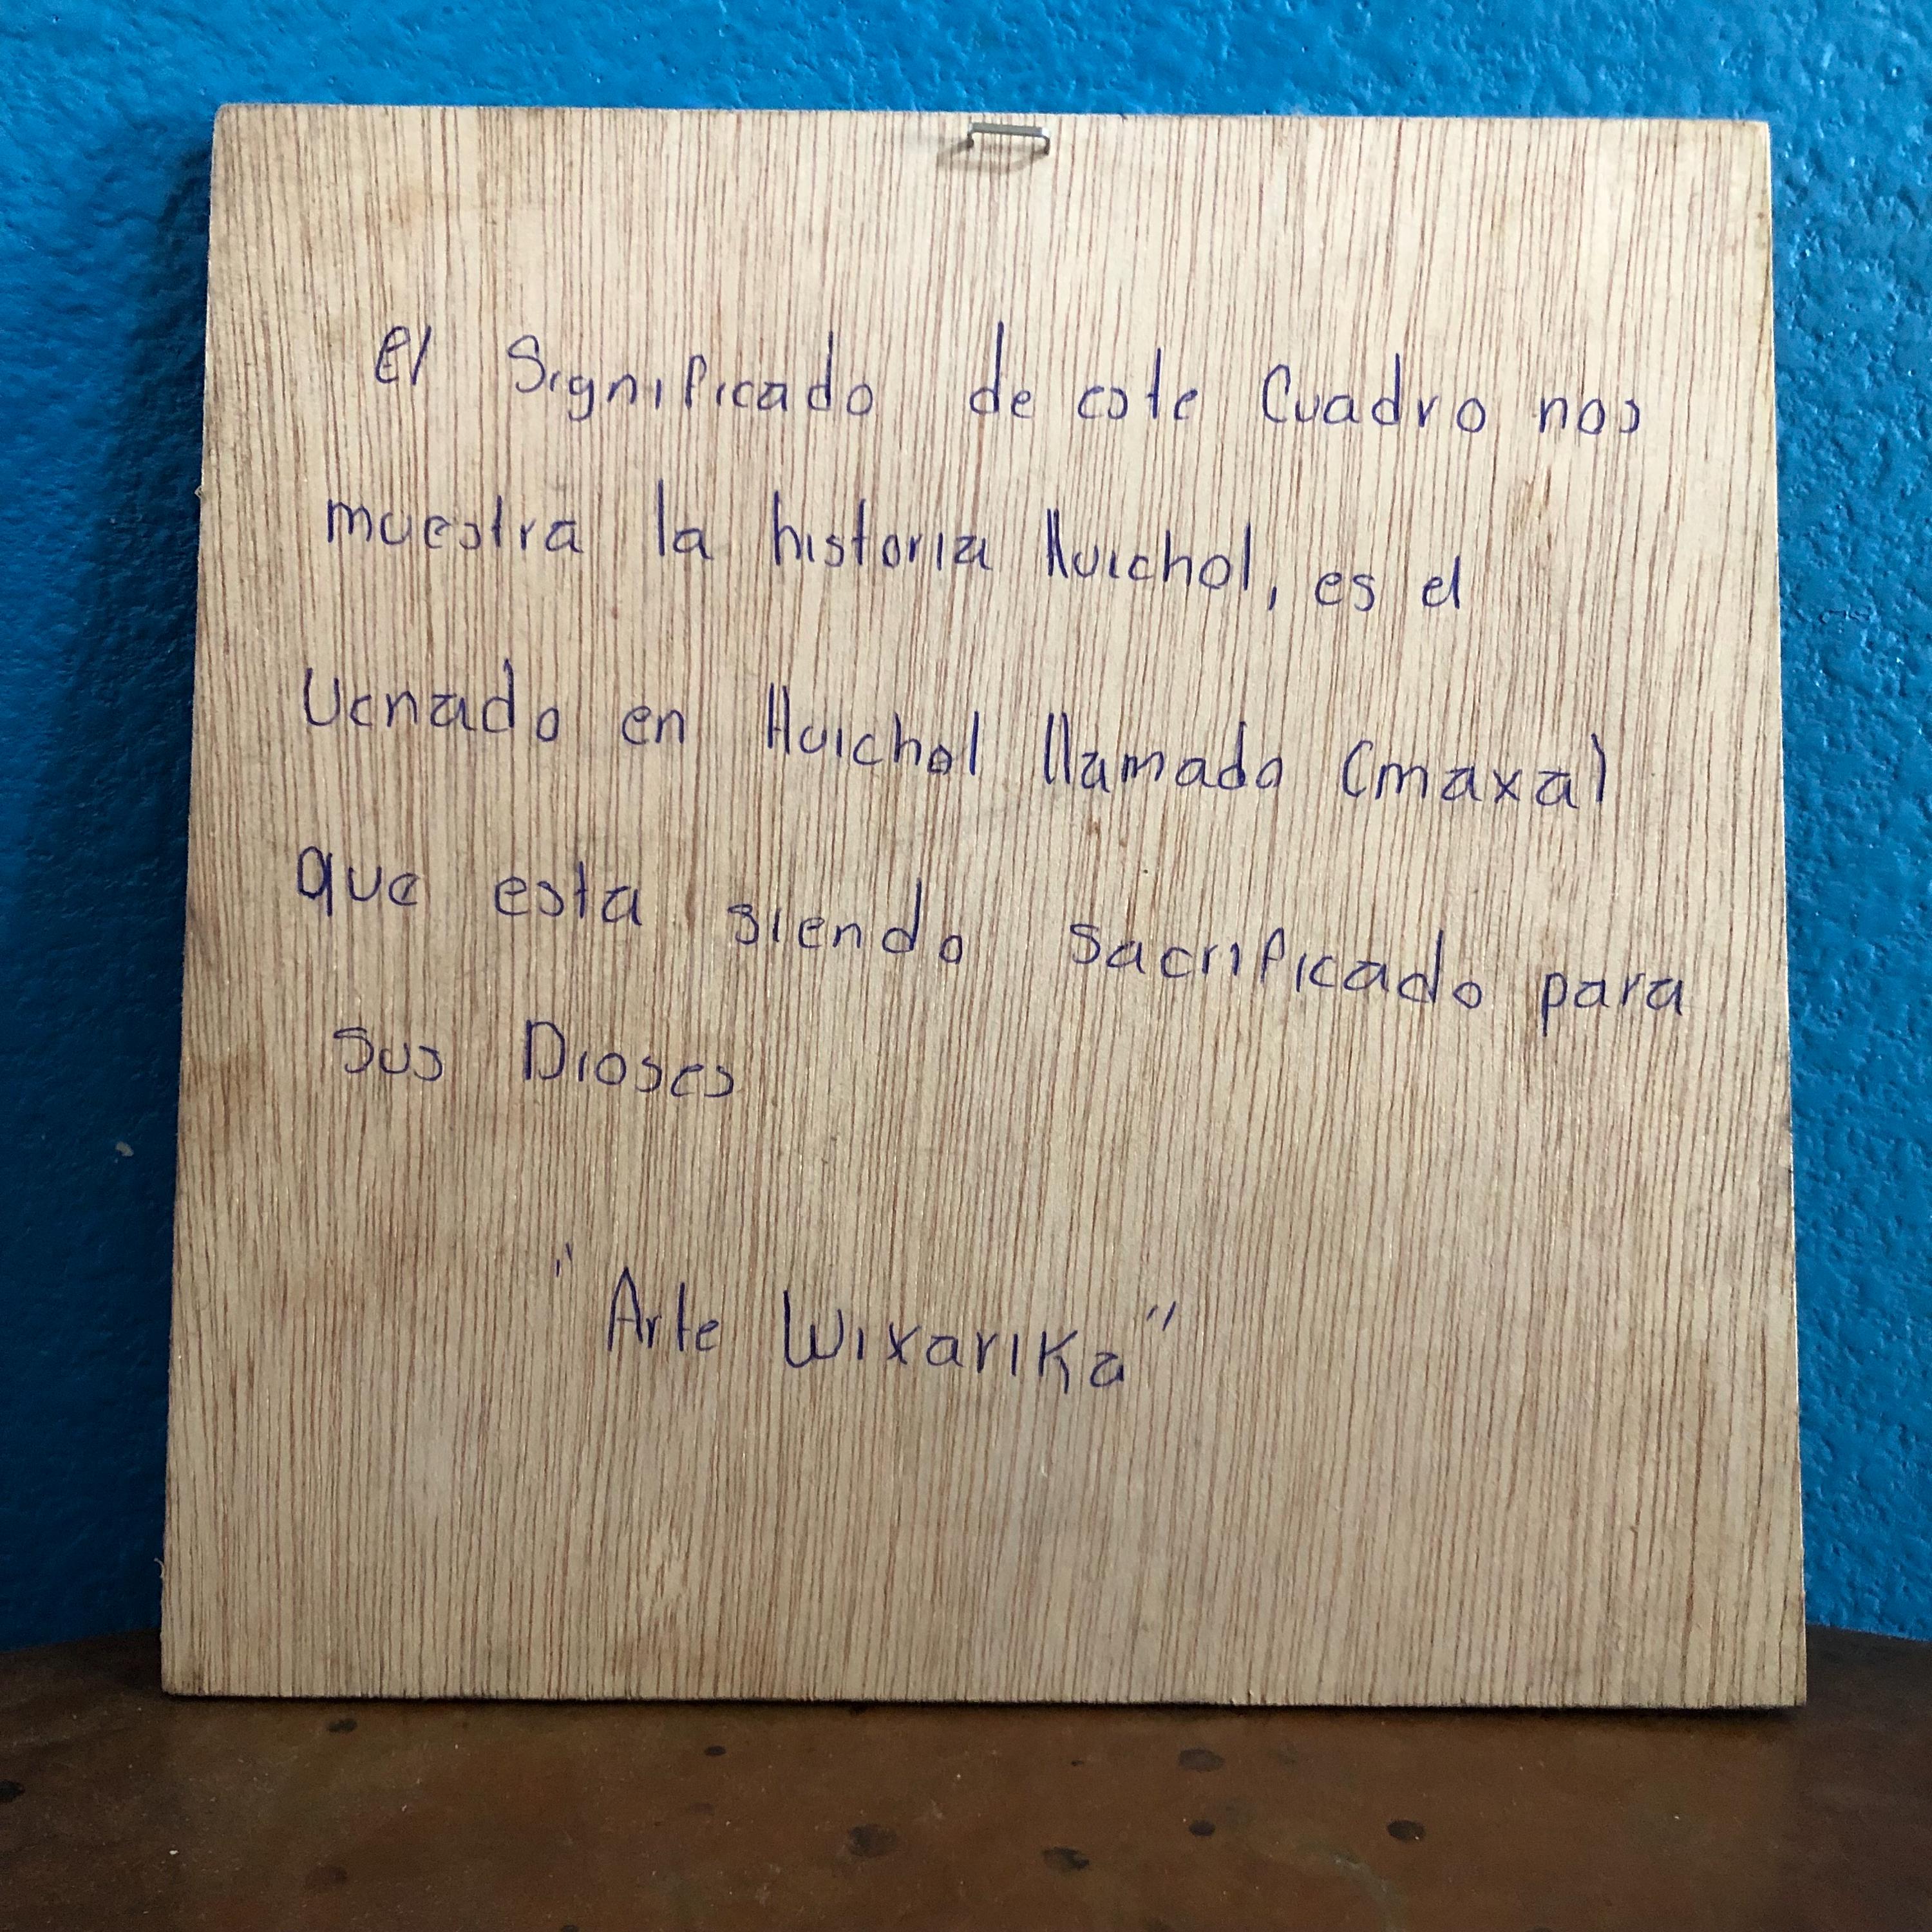 El Significado de este Cuadro nos
muestra la historia Huichol, es el
Venado en Huichol llamado (maxa)
que esta siendo sacrificado para
sus Dioses
"Arte Wixarika"